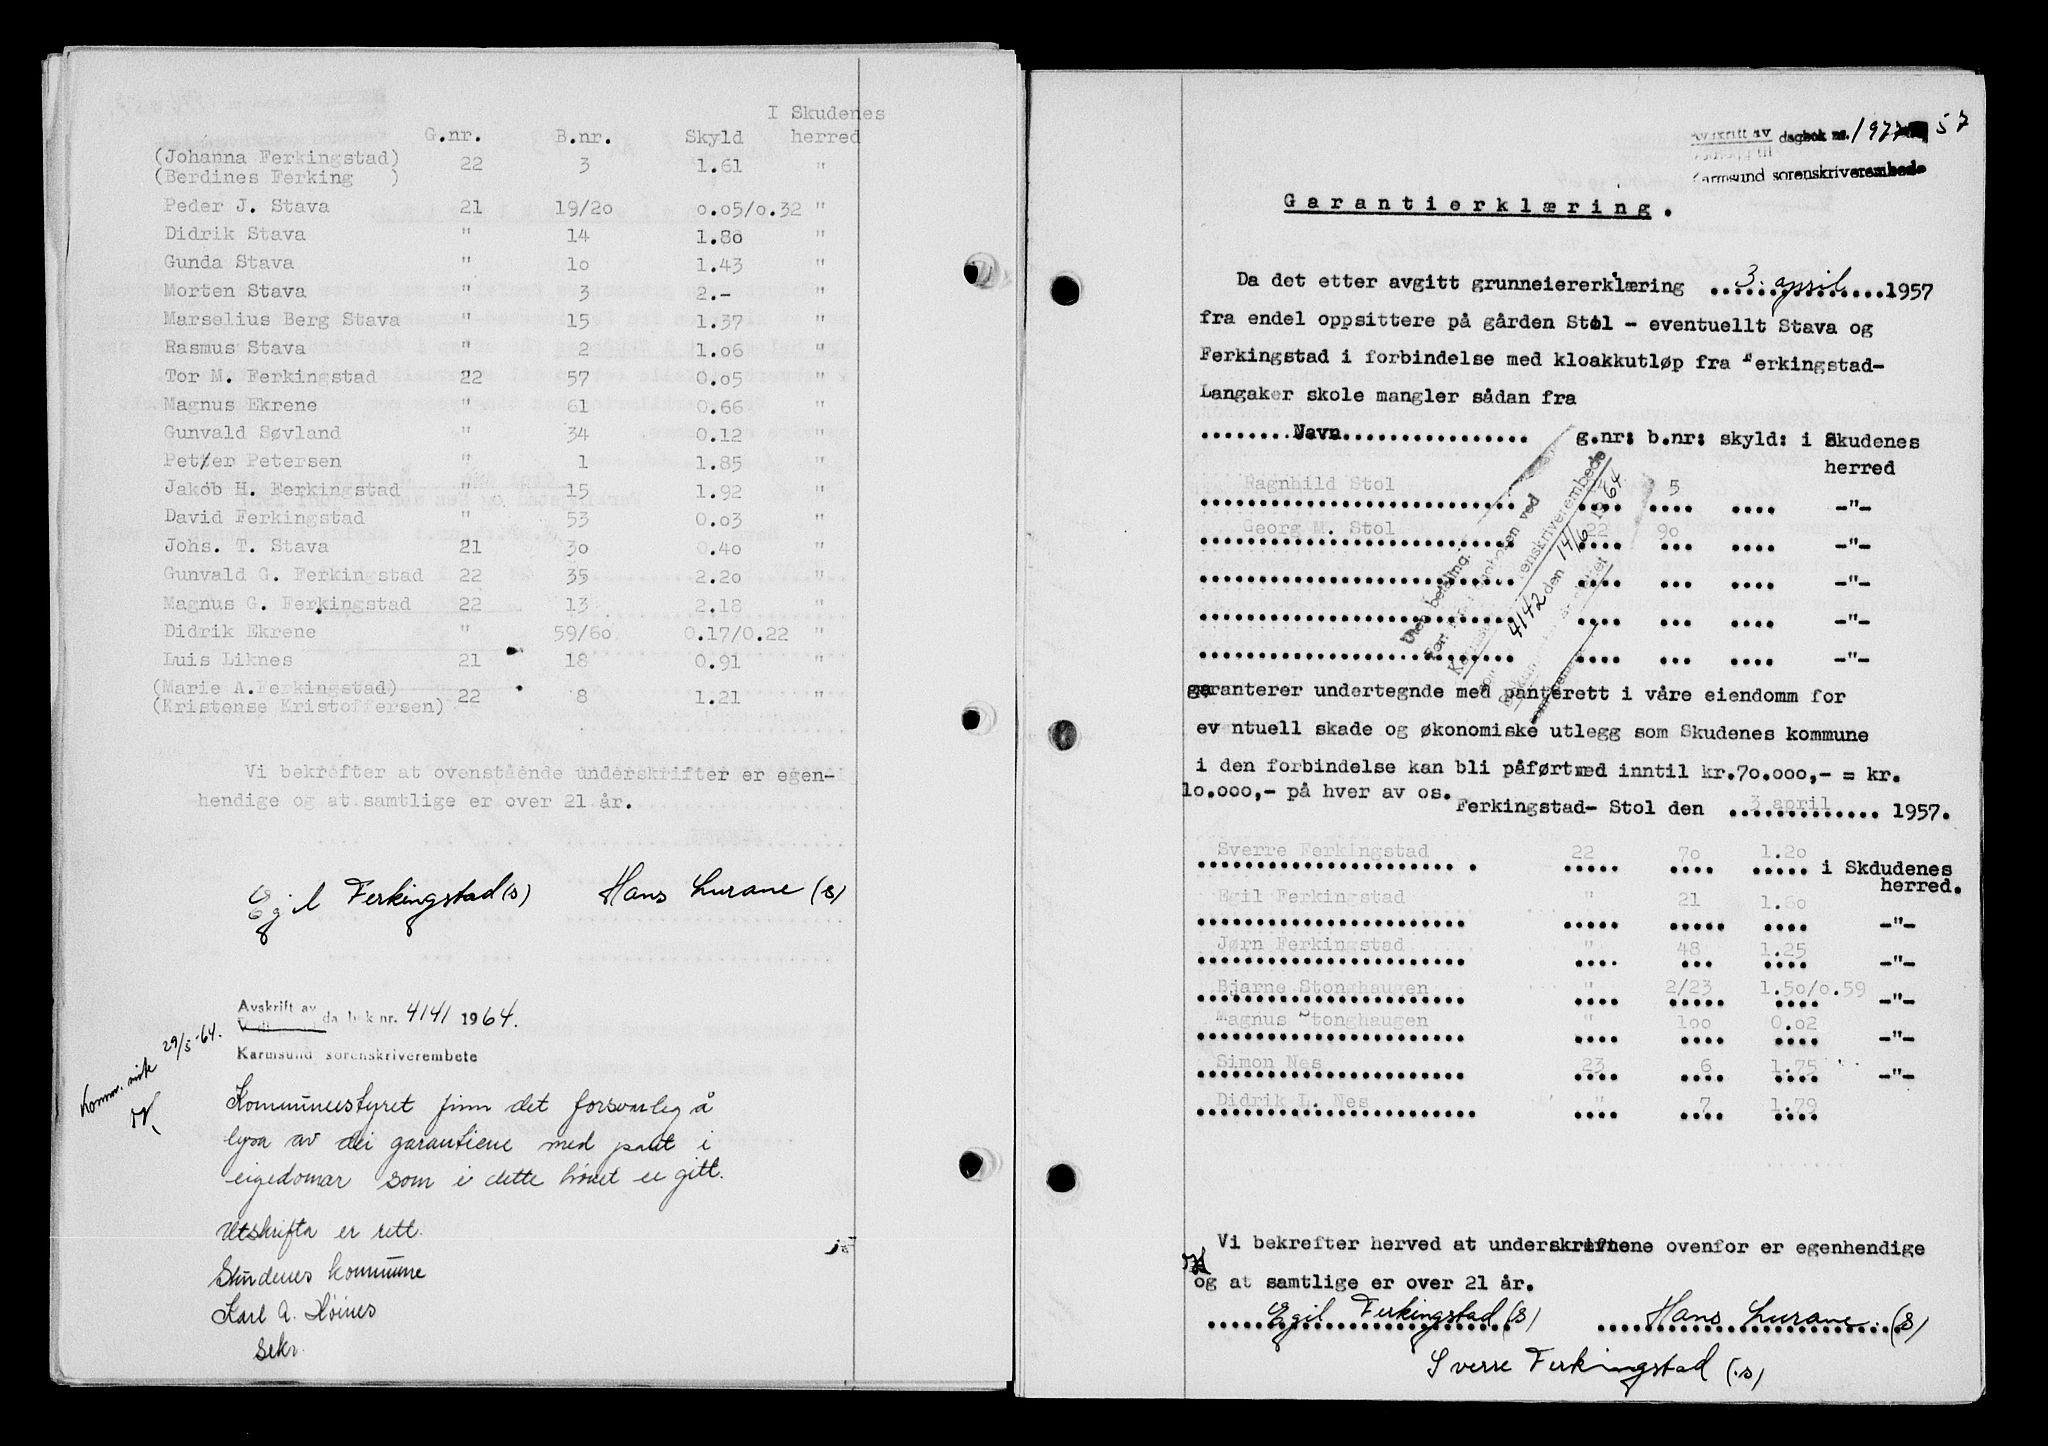 I Skudenes
G.nr. B.nr. Skyld herred
(Johanna Ferkingstad) 22 3 1.61 "
(Berdines Ferking )
Peder J. Stava 21 19/20 0.05/0.32 "
Didrik Stava " 14 1.80 "
Gunda Stava " 10 1.43 "
Morten Stava " 3 2.- "
Marselius Berg Stava " 15 1.37 "
Rasmus Stava " 2 1.06 "
Tor M. Ferkingstad 22 57 0.05 "
Magnus Ekrene " 61 0.66 "
Gunvald Søvland " 34 0.12 "
Petter Petersen " 1 1.85 "
Jakob H. Ferkingstad " 15 1.92 "
David Ferkingstad " 53 0.03 "
Johs. T. Stava 21 30 0.40 "
Gunvald G. Ferkingstad 22 35 2.20 "
Magnus G. Ferkingstad 22 13 2.18 "
Didrik Ekrene " 59/60 0.17/0.22 "
Luis Liknes 21 18 0.91 "
(Marie A.Ferkingstad) 22 8 1.21 "
(Kristense Kristoffersen)
Vi bekrefter at ovenstående underskrifter er egen-
hendige og at samtlige er over 21 år.
Egil Ferkingstad (s) Hans Lurane (s)
Avskrift av
dagbok nr. 4141 1964.
Karmsund sorenskriverembete
29/5-64.
Kommunestyret finn det forsvarleg å
lysa av dei garantiene med pant i
eigedomar som i dette høvet er gitt.
Utskrifta er rett.
Skudenes kommune
Karl A. Høines
sekr.
Avskrift av dagbok nr. 1977 57
Karmsund sorenskriverembede
Garantierklæring.
Da det etter avgitt grunneiererklæring ..3. april....1957
fra endel oppsittere på gården Stol - eventuellt Stava og
Ferkingstad i forbindelse med kloakkutløp fra Ferkingstad-
Langaker skole mangler sådan fra
........Navn................ g.nr: b.nr: skyld: i Skudenes
herred
Ragnhild Stol 5 -"-
Georg M. Stol 22 90 -"-
-"-
-"-
-"-
Uten betaling.
4142 den 14/6 1964
garanterer undertegnde med panterett i våre eiendomm for
ev ntuell skade og økonomiske utlegg som Skudenes kommune
i den forbindelse kan bli påført med inntil kr.70.000,- = kr.
10.000,- på hver av os.
Ferkingstad- Stol den 3 april 1957.
Sverre Ferkingstad 22 70 1.20 i Skdudenes
herred.
Egil Ferkingstad " 21 1.60 -"-
Jørn Ferkingstad " 48 1.25 -"-
Bjarne Stonghaugen " 2/23 1.50/0.59 -"-
Magnus Stonghaugen " 100 0.02 -"-
Simon Nes 23 6 1.75 -"-
Didrik L. Nes " 7 1.79
Vi bekrefter herved at underskriftene ovenfor er egenhendige
og at samtlige er over 21 år.
Egil Ferkingstad (s) Hans Lurane (s)
Sverre Ferkingstad (s)